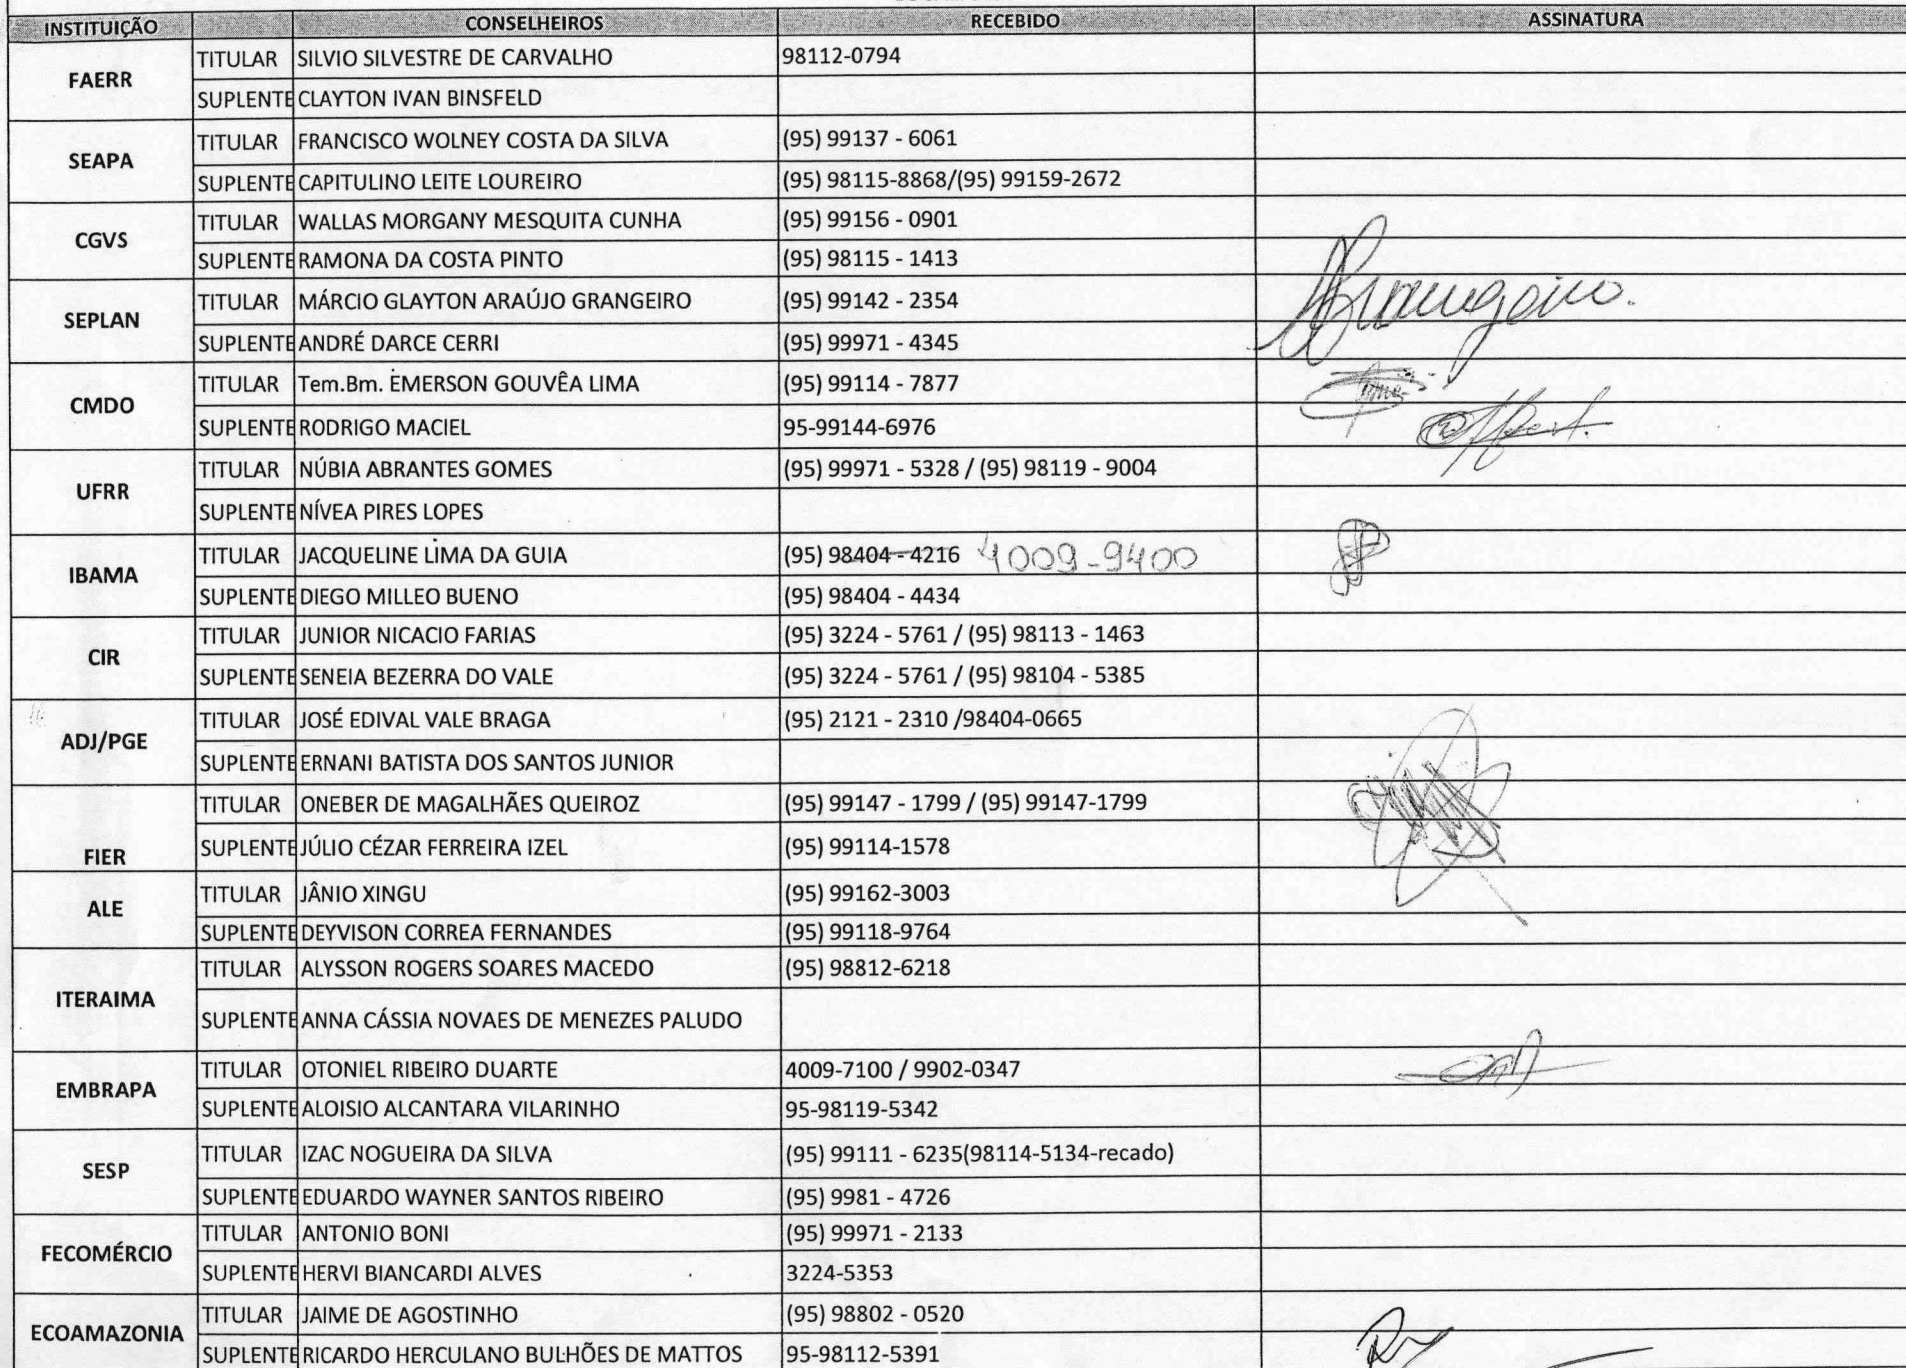 INSTITUIÇÃO CONSELHEIROS RECEBIDO ASSINATURA
FAERR
TITULAR SILVIO SILVESTRE DE CARVALHO 98112-0794
SUPLENTE CLAYTON IVAN BINSFELD
SEAPA
TITULAR FRANCISCO WOLNEY COSTA DA SILVA (95) 99137 - 6061
SUPLENTE CAPITULINO LEITE LOUREIRO (95) 98115-8868/(95) 99159-2672
CGVS
TITULAR WALLAS MORGANY MESQUITA CUNHA (95) 99156 - 0901
SUPLENTE RAMONA DA COSTA PINTO (95) 98115 - 1413
SEPLAN
TITULAR MÁRCIO GLAYTON ARAÚJO GRANGEIRO (95) 99142 - 2354
SUPLENTE ANDRÉ DARCE CERRI (95) 99971 - 4345
CMDO
TITULAR Tem.Bm. EMERSON GOUVÊA LIMA (95) 99114 - 7877
SUPLENTE RODRIGO MACIEL 95-99144-6976
UFRR
TITULAR NÚBIA ABRANTES GOMES (95) 99971 - 5328 / (95) 98119 - 9004
SUPLENTE NÍVEA PIRES LOPES
IBAMA
TITULAR JACQUELINE LIMA DA GUIA (95) 98404 - 4216 4009-9400
SUPLENTE DIEGO MILLEO BUENO (95) 98404 - 4434
CIR
TITULAR JUNIOR NICACIO FARIAS (95) 3224 - 5761 / (95) 98113 - 1463
SUPLENTE SENEIA BEZERRA DO VALE (95) 3224 - 5761 / (95) 98104 - 5385
ADJ/PGE
TITULAR JOSÉ EDIVAL VALE BRAGA (95) 2121 - 2310 /98404-0665
SUPLENTE ERNANI BATISTA DOS SANTOS JUNIOR
FIER
TITULAR ONEBER DE MAGALHÃES QUEIROZ (95) 99147 - 1799 / (95) 99147-1799
SUPLENTE JÚLIO CÉZAR FERREIRA IZEL (95) 99114-1578
ALE
TITULAR JÂNIO XINGU (95) 99162-3003
SUPLENTE DEYVISON CORREA FERNANDES (95) 99118-9764
ITERAIMA
TITULAR ALYSSON ROGERS SOARES MACEDO (95) 98812-6218
SUPLENTE ANNA CÁSSIA NOVAES DE MENEZES PALUDO
EMBRAPA
TITULAR OTONIEL RIBEIRO DUARTE 4009-7100 / 9902-0347
SUPLENTE ALOISIO ALCANTARA VILARINHO 95-98119-5342
SESP
TITULAR IZAC NOGUEIRA DA SILVA (95) 99111 - 6235(98114-5134-recado)
SUPLENTE EDUARDO WAYNER SANTOS RIBEIRO (95) 9981 - 4726
FECOMÉRCIO
TITULAR ANTONIO BONI (95) 99971 - 2133
SUPLENTE HERVI BIANCARDI ALVES 3224-5353
ECOAMAZONIA
TITULAR JAIME DE AGOSTINHO (95) 98802 - 0520
SUPLENTE RICARDO HERCULANO BULHÕES DE MATTOS 95-98112-5391